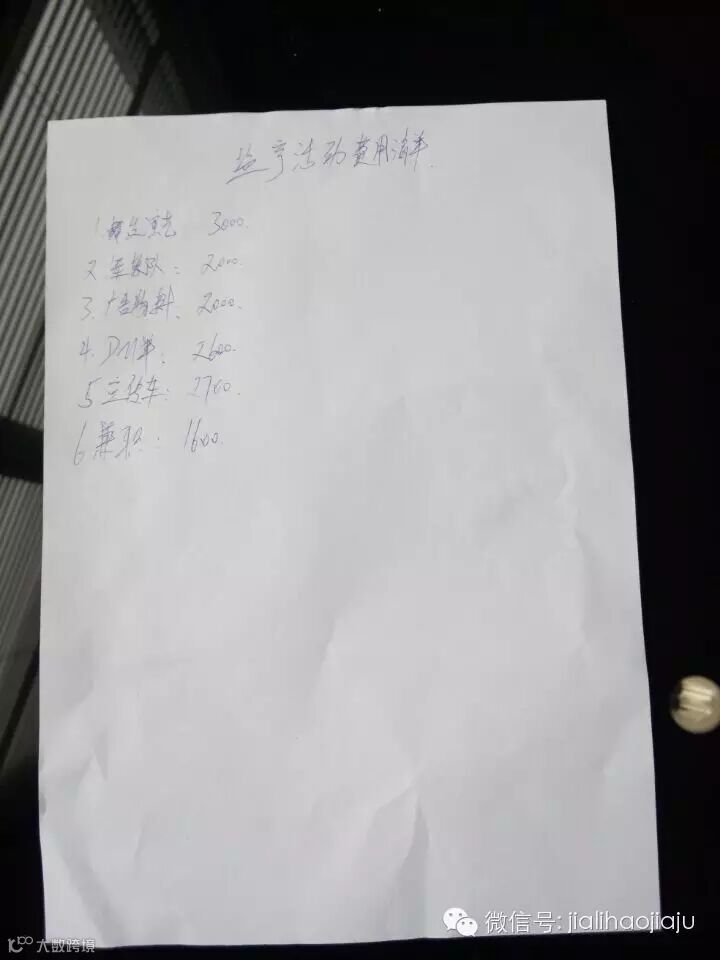 盐亭活动费用清单.
1. 演艺 3000.
2. 队: 2000.
3. 广告物料. 2000.
4. DM单: 2600.
5 宣传车: 2700.
6 兼职: 1600.
微信号: jialihaojiaju
10100 大数跨境